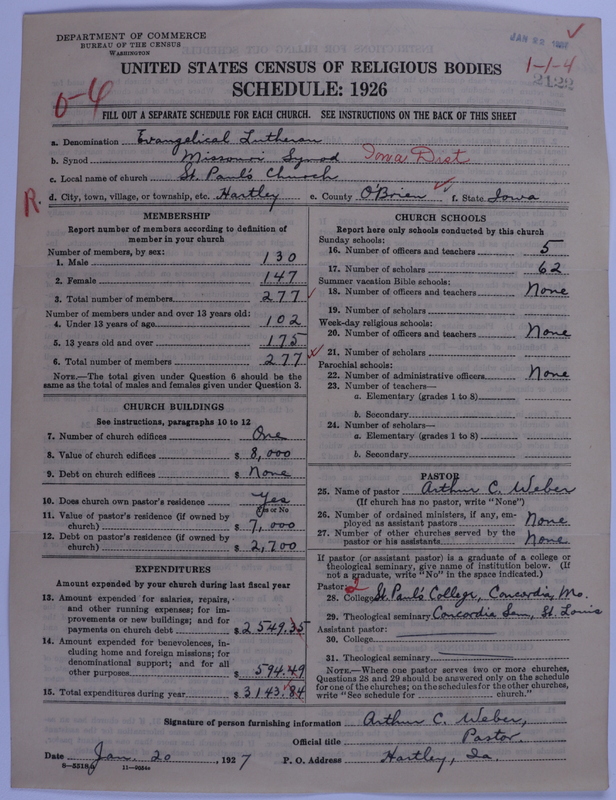 DEPARTMENT OF COMMERCE
BUREAU OF THE CENSUS
WASHINGTON
JAN 22 1927
1-1-4
2122
UNITED STATES CENSUS OF RELIGIOUS BODIES
SCHEDULE: 1926
0-4
FILL OUT A SEPARATE SCHEDULE FOR EACH CHURCH. SEE INSTRUCTIONS ON THE BACK OF THIS SHEET
a. Denomination Evangelical Lutheran
b. Synod Missouri Synod Iowa Dist
c. Local name of church St. Paul's Church
R.
d. City, town, village, or township, etc. Hartley e. County O'Brien f. State Iowa
MEMBERSHIP
Report number of members according to definition of
member in your church
Number of members, by sex:
1. Male 130
2. Female 147
3. Total number of members 277
Number of members under and over 13 years old:
4. Under 13 years of age 102
5. 13 years old and over 175
6. Total number of members 277
NOTE.—The total given under Question 6 should be the
same as the total of males and females given under Question 3.
CHURCH BUILDINGS
See instructions, paragraphs 10 to 12
7. Number of church edifices One
8. Value of church edifices $ 8,000
9. Debt on church edifices $ None
10. Does church own pastor's residence Yes
Yes or No
11. Value of pastor's residence (if owned by
church) $ 7,000
12. Debt on pastor's residence (if owned by
church) $ 2,700
EXPENDITURES
Amount expended by your church during last fiscal year
13. Amount expended for salaries, repairs,
and other running expenses; for im-
provements or new buildings; and for
payments on church debt $ 2549.35
14. Amount expended for benevolences, in-
cluding home and foreign missions; for
denominational support; and for all
other purposes $ 594.49
15. Total expenditures during year $ 3143.84
CHURCH SCHOOLS
Report here only schools conducted by this church
Sunday schools:
16. Number of officers and teachers 5
17. Number of scholars 62
Summer vacation Bible schools:
18. Number of officers and teachers None
19. Number of scholars
Week-day religious schools:
20. Number of officers and teachers None
21. Number of scholars
Parochial schools:
22. Number of administrative officers None
23. Number of teachers—
a. Elementary (grades 1 to 8)
b. Secondary
24. Number of scholars—
a. Elementary (grades 1 to 8)
b. Secondary
PASTOR
25. Name of pastor Arthur C. Weber
(If church has no pastor, write "None")
26. Number of ordained ministers, if any, em-
ployed as assistant pastors None
27. Number of other churches served by the
pastor or his assistants None
If pastor (or assistant pastor) is a graduate of a college or
theological seminary, give name of institution below. (If
not a graduate, write "No" in the space indicated.)
Pastor: 2
28. College St. Paul's College, Concordia, Mo.
29. Theological seminary Concordia Sem, St. Louis
Assistant pastor:
30. College
31. Theological seminary
NOTE.—Where one pastor serves two or more churches,
Questions 28 and 29 should be answered only on the schedule
for one of the churches; on the schedules for the other churches,
write "See schedule for church."
Signature of person furnishing information Arthur C. Weber,
Official title Pastor.
Date Jan. 20, 1927 P. O. Address Hartley, Ia.